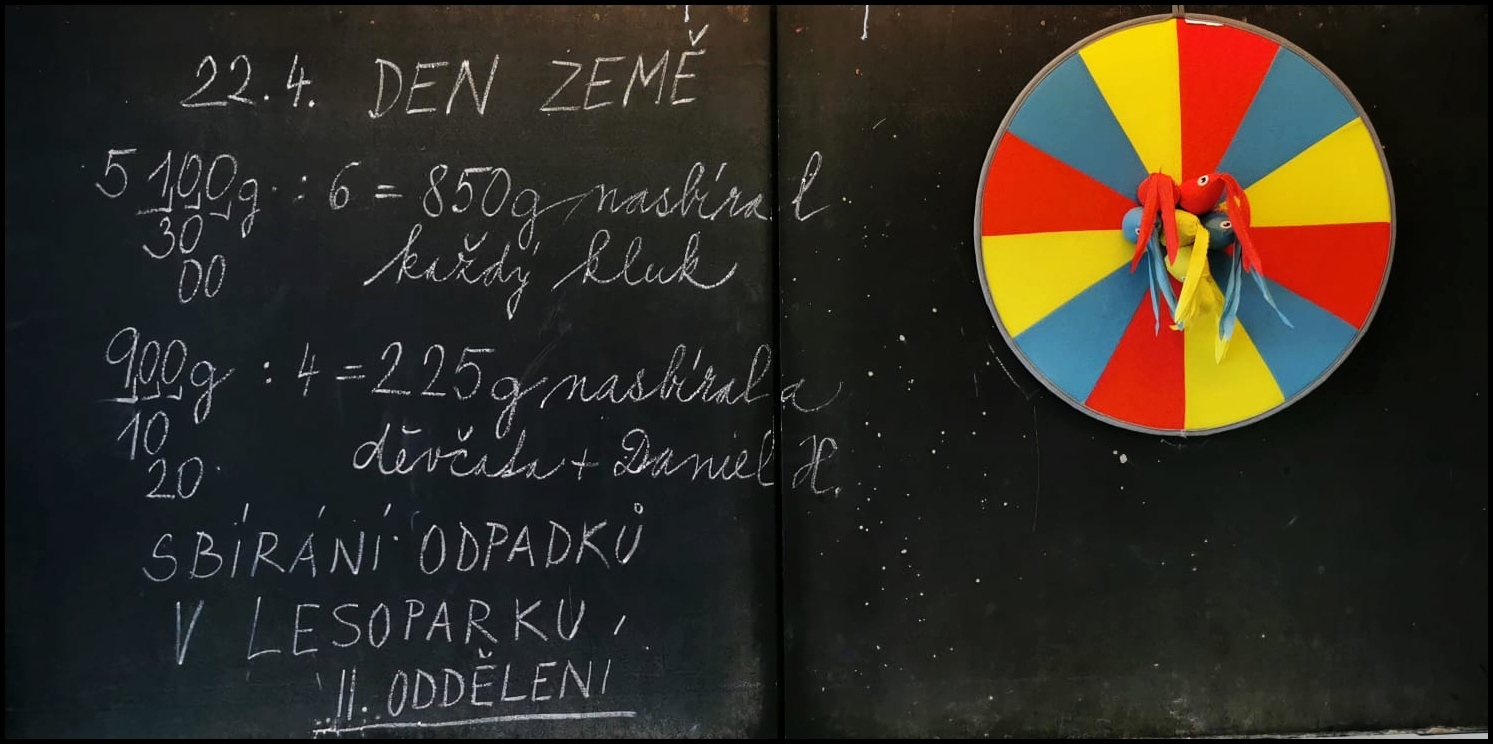 22.4. DEN ZEMĚ
5 100g : 6 = 850g nasbíral
30
00 každý kluk
900g : 4 = 225g nasbírala
10
20 děvčata + Daniel H.
SBÍRÁNÍ ODPADKŮ
V LESOPARKU,
II. ODDĚLENÍ